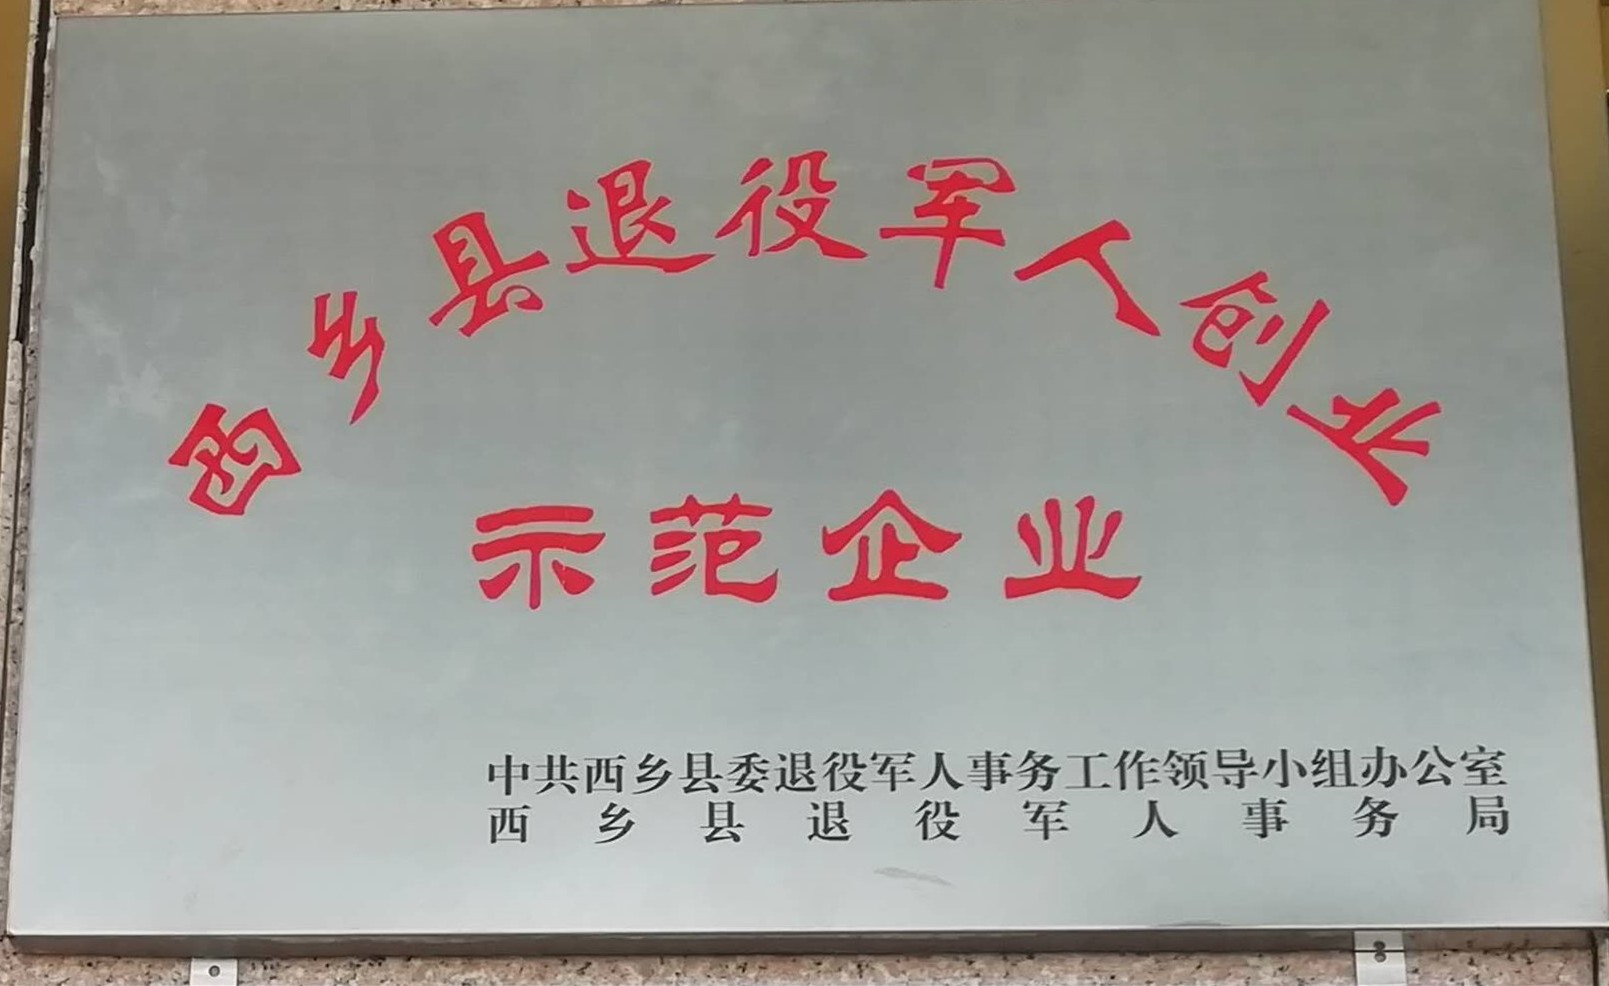 西乡县退役军人创业
示范企业
中共西乡县委退役军人事务工作领导小组办公室
西乡县退役军人事务局